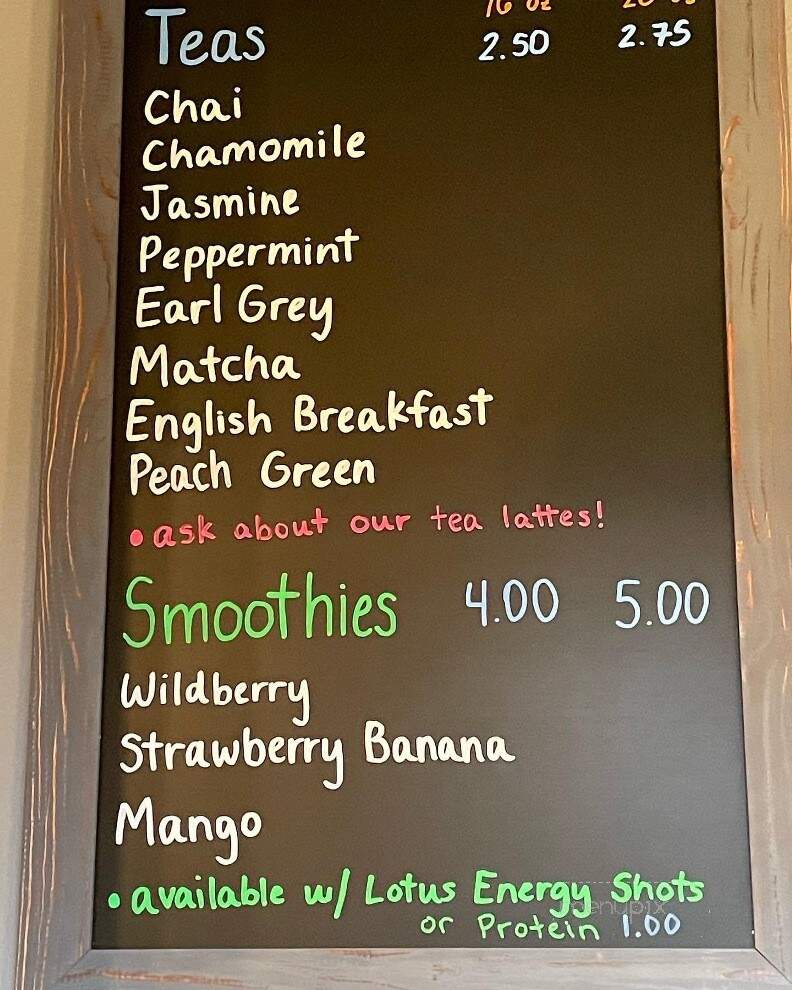 16 oz 20 oz
Teas 2.50 2.75
Chai
Chamomile
Jasmine
Peppermint
Earl Grey
Matcha
English Breakfast
Peach Green
• ask about our tea lattes!
Smoothies 4.00 5.00
Wildberry
Strawberry Banana
Mango
• available w/ Lotus Energy Shots
menupix
or Protein 1.00